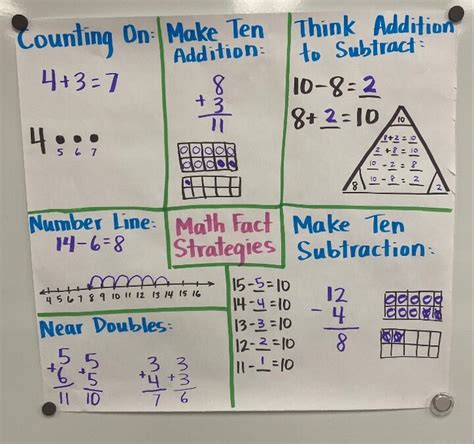 Counting On:
4+3=7
4
5 6 7
Make Ten
Addition:
8
+ 3
11
Think Addition
to Subtract:
10-8=2
8+2=10
10
8+2=10
2+8=10
10-2=8
10-8=2
8
2
Number Line:
14-6=8
4 5 6 7 8 9 10 11 12 13 14 15 16
Math Fact
Strategies
Make Ten
Subtraction:
15-5=10
14-4=10
13-3=10
12-2=10
11-1=10
12
- 4
8
Near Doubles:
5
+6
11
5
+5
10
3
+4
7
3
+3
6